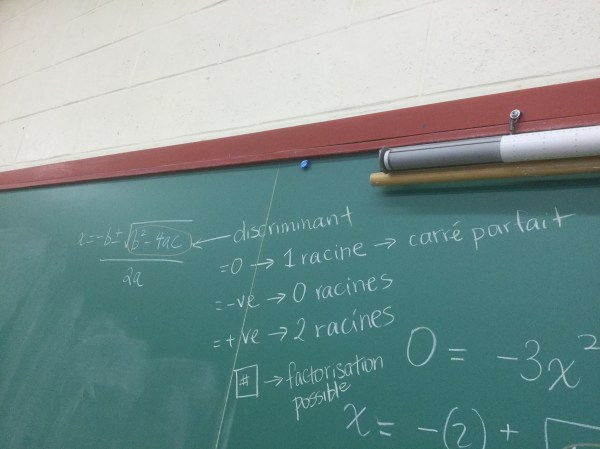 x = -b ± √b² - 4ac
2a
← discriminant
= 0 → 1 racine → carré parfait
= -ve → 0 racines
= +ve → 2 racines
# → factorisation
possible
0 = -3x²
x = -(2) +